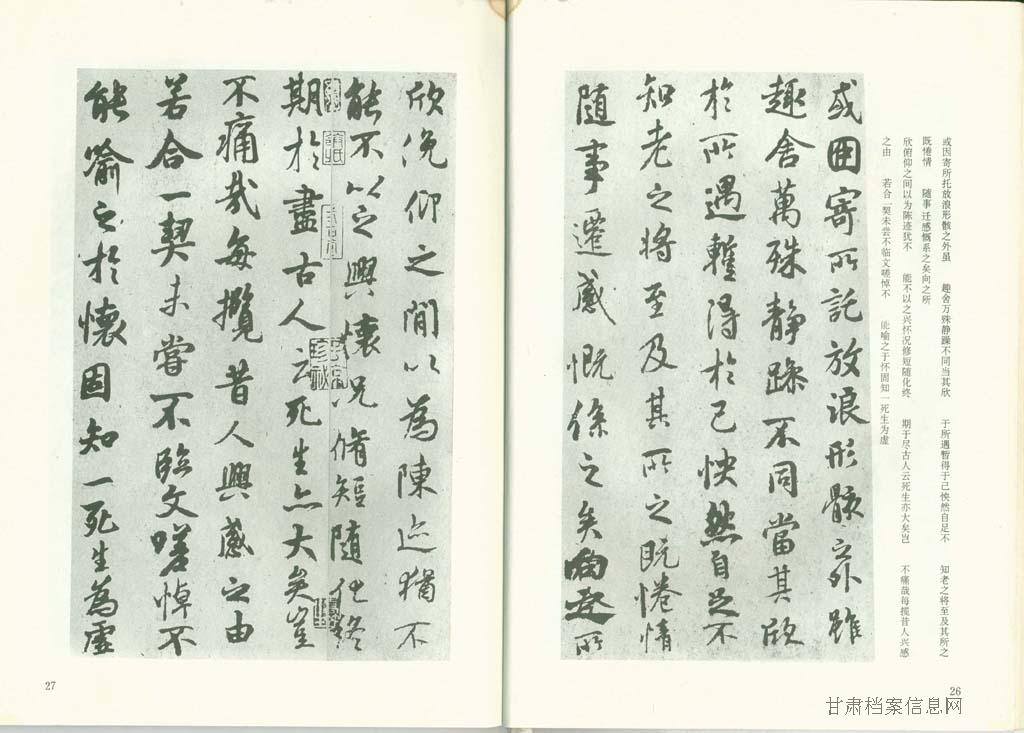 或因寄所托放浪形骸之外虽　趣舍万殊静躁不同当其欣　于所遇暂得于己怏然自足不　知老之将至及其所之
既惓情　随事迁感慨系之矣向之所
欣俯仰之间以为陈迹犹不　能不以之兴怀况修短随化终　期于尽古人云死生亦大矣岂　不痛哉每揽昔人兴感
之由　若合一契未尝不临文嗟悼不　能喻之于怀固知一死生为虚
或因寄所託放浪形骸之外雖
趣舍萬殊静躁不同當其欣
於所遇蹔得於己怏然自足不
知老之将至及其所之既惓情
随事遷感慨係之矣向之所
26
欣俛仰之閒以為陳迹猶不
能不以之興懷况脩短随化終
期於盡古人云死生亦大矣豈
不痛哉每攬昔人興感之由
若合一契未嘗不臨文嗟悼不
能喻之於懷固知一死生為虛
27
甘肃档案信息网